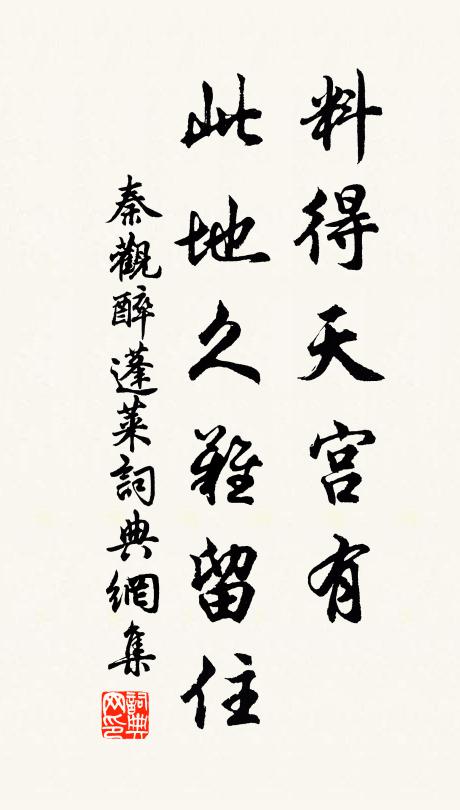 料得天宮有
此地久難留住
秦觀醉蓬萊詞典網集
詞典网印